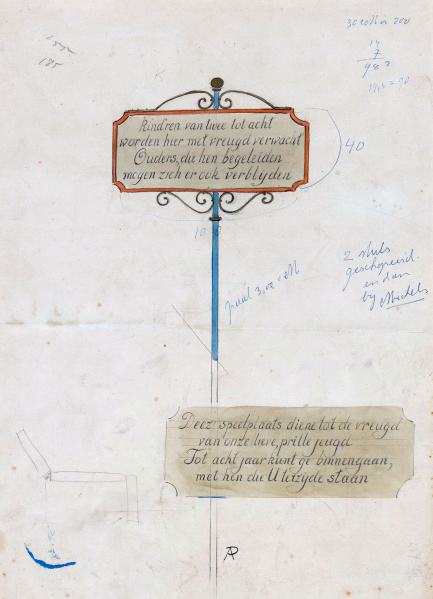 185
40
10
Kind'ren van twee tot acht
worden hier met vreugd verwacht
Ouders, die hen begeleiden
mogen zich er ook verblijden
paal 3,
2 stuks
geschopeerd
en dan
by
Deez' speelplaats diene tot de vreugd
van onze lieve, prille jeugd
Tot acht jaar kunt ge binnengaan,
met hen die U terzyde staan